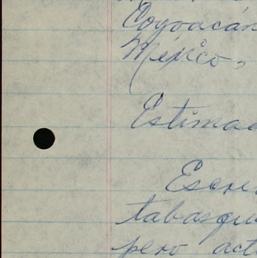 Coyoacán
México,
Estimad
Escri
tabasqu
pero act